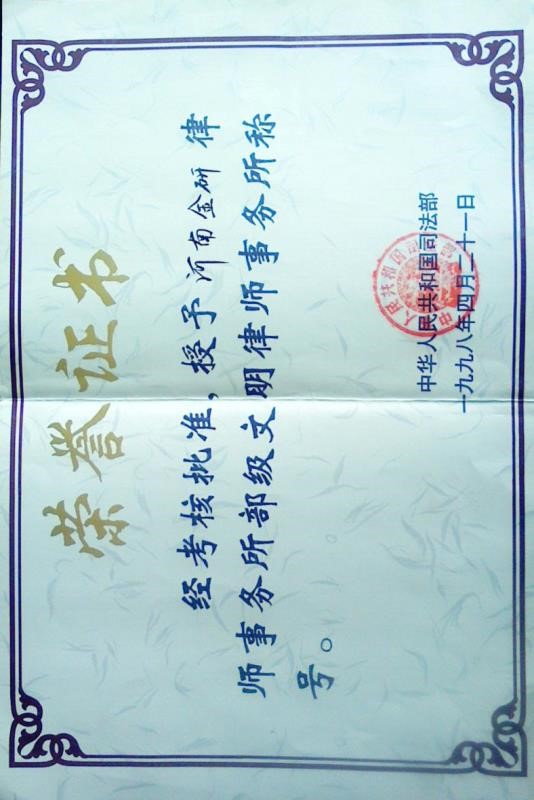 荣誉证书
经考核批准，授予河南金研律
师事务所部级文明律师事务所称
号。
中华人民共和国司法部
一九九八年四月二十一日